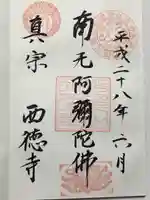 平成二十八年六月
南无阿彌陀佛
真宗 西徳寺